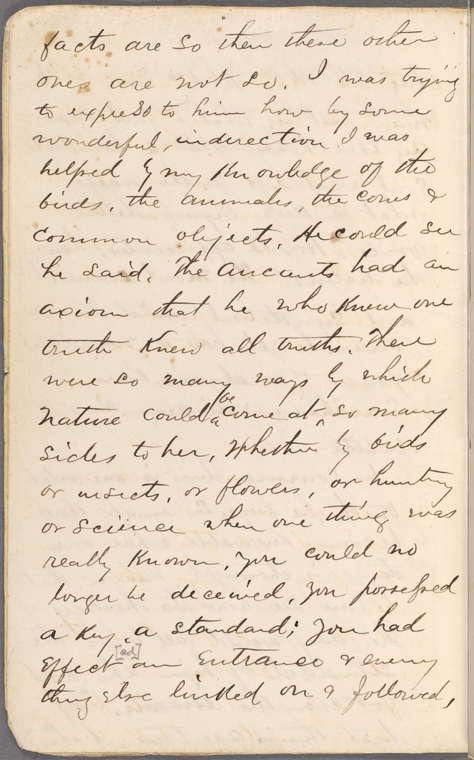 facts are so then these other
ones are not so. I was trying
to express to him how by some
wonderful, inderection I was
helped by my knowledge of the
birds, the animals, the cows &
common objects. He could see
he said. The ancients had an
axiom that he who knew one
truth knew all truths. There
were so many ways by which
nature could be come at, so many
sides to her, whether by birds
or insects, or flowers, or hunting
or science when one thing was
really known, you could no
longer be deceived, you possessed
a key, a standard; you had
effect[ed] an entrance & every
thing else linked on & followed,